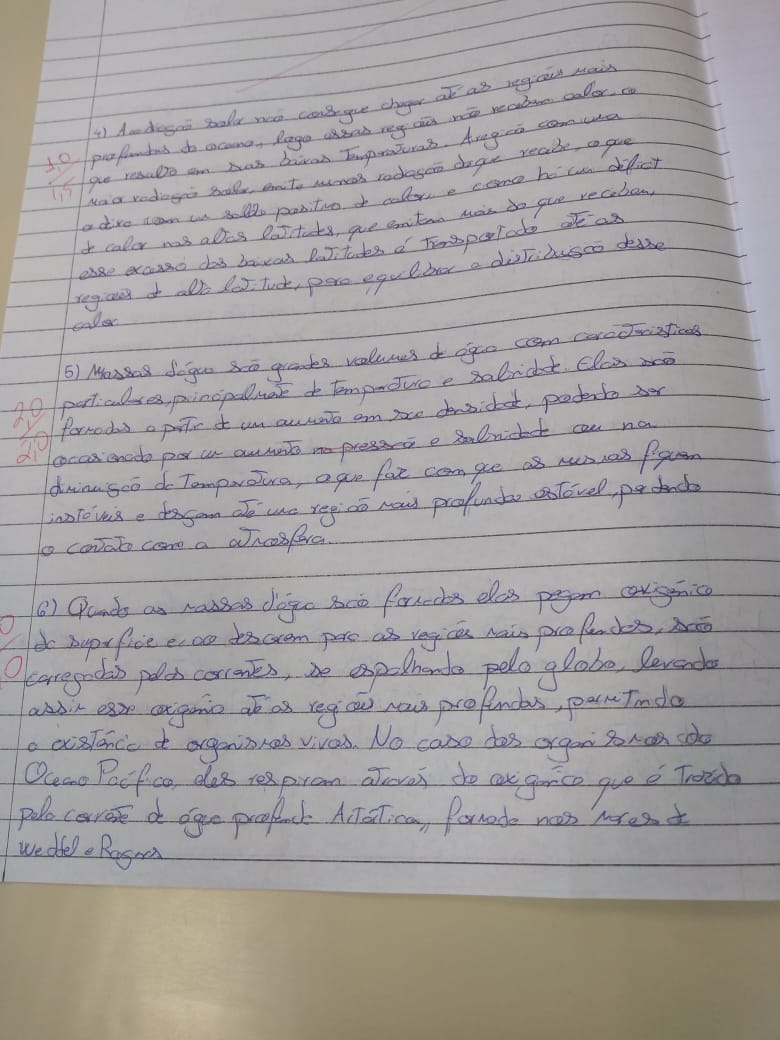 4) A radiação solar não consegue chegar até as regiões mais
profundas do oceano, logo essas regiões não recebem calor, o
1,0
1,5
que resulta em suas baixas Temperaturas. A região com uma
maior radiação solar, emite menos radiação do que recebe, o que
a deixa com um saldo positivo de calor, e como há um déficit
de calor nas altas latitudes, que emitem mais do que recebem,
esse excesso das baixas latitudes é Transportado até as
regiões de alta latitude, para equilibrar a distribuição desse
calor.
5) Massas d'água são grandes volumes de água com características
particulares, principalmente de Temperatura e salinidade. Elas são
2,0
2,0
formadas a partir de um aumento em sua densidade, podendo ser
ocasionado por um aumento na pressão e salinidade ou na
diminuição da Temperatura, o que faz com que as mesmas fiquem
instáveis e desçam até uma região mais profunda estável, perdendo
o contato com a atmosfera.
6) Quando as massas d'água são formadas elas pegam oxigênio
da superfície e ao descerem para as regiões mais profundas, são
0
0
carregadas pelas correntes, se espalhando pelo globo, levando
assim esse oxigênio até as regiões mais profundas, permitindo
a existência de organismos vivos. No caso dos organismos do
Oceano Pacífico, eles respiram através do oxigênio que é Trazido
pela corrente de água profunda Antártica, formada nos mares de
Weddel e